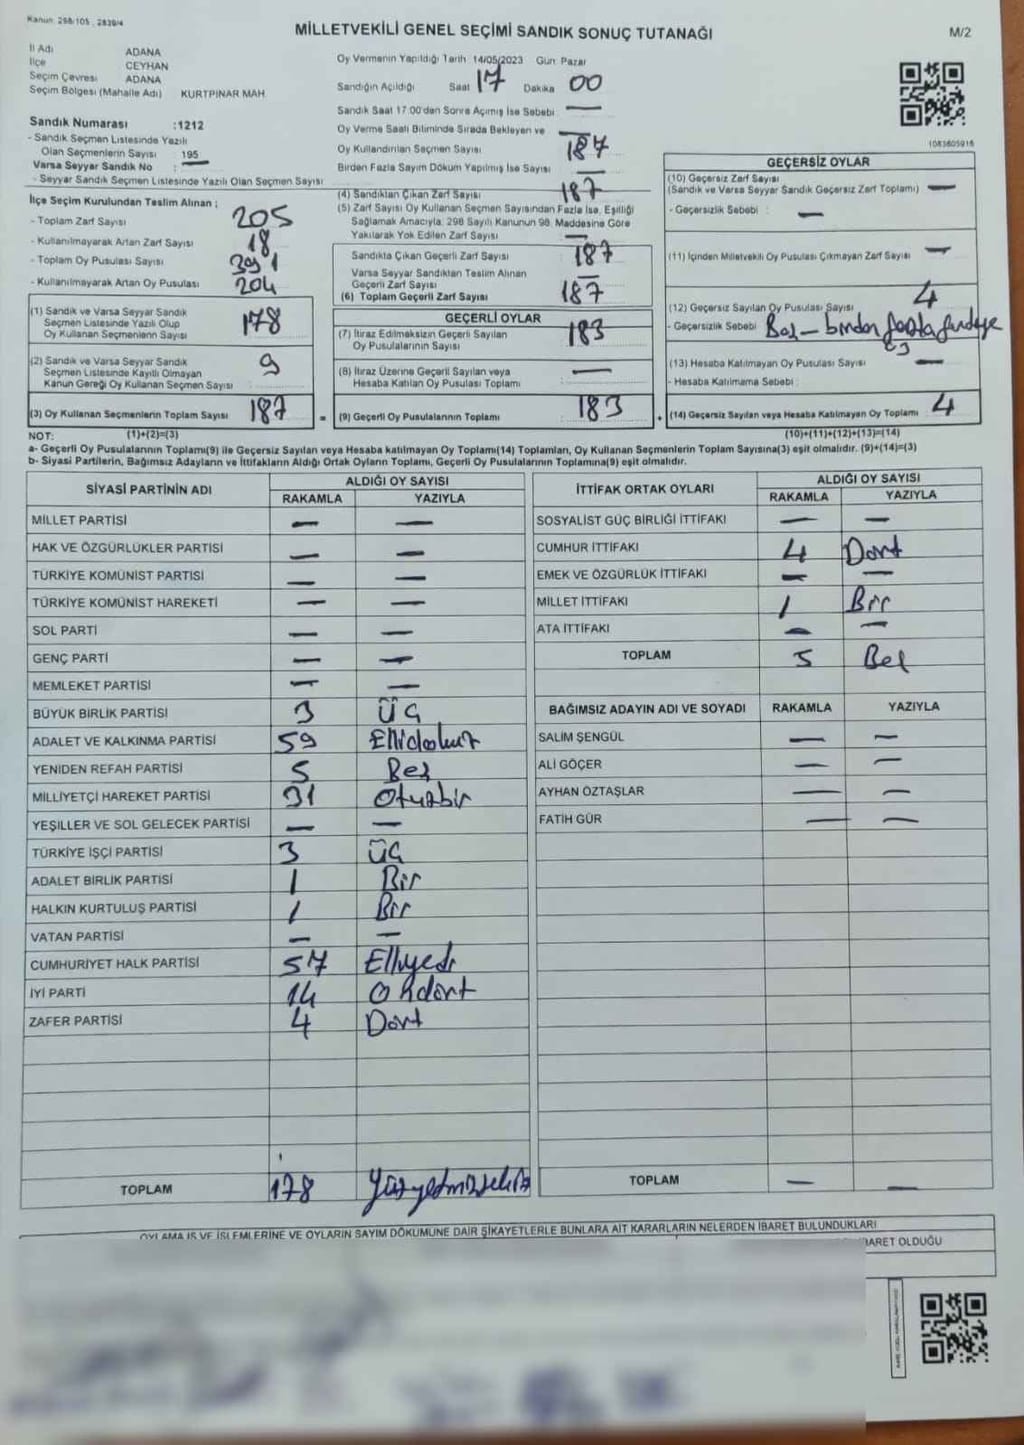 Kanun: 298/105, 2839/4
MİLLETVEKİLİ GENEL SEÇİMİ SANDIK SONUÇ TUTANAĞI
M/2
İl Adı ADANA
İlçe CEYHAN
Seçim Çevresi ADANA
Seçim Bölgesi (Mahalle Adı) KURTPINAR MAH.
Sandık Numarası :1212
- Sandık Seçmen Listesinde Yazılı
Olan Seçmenlerin Sayısı 195
Varsa Seyyar Sandık No : —
- Seyyar Sandık Seçmen Listesinde Yazılı Olan Seçmen Sayısı
İlçe Seçim Kurulundan Teslim Alınan ;
- Toplam Zarf Sayısı 205
- Kullanılmayarak Artan Zarf Sayısı 18
- Toplam Oy Pusulası Sayısı 391
- Kullanılmayarak Artan Oy Pusulası 204
(1) Sandık ve Varsa Seyyar Sandık
Seçmen Listesinde Yazılı Olup
Oy Kullanan Seçmenlerin Sayısı 178
(2) Sandık ve Varsa Seyyar Sandık
Seçmen Listesinde Kayıtlı Olmayan
Kanun Gereği Oy Kullanan Seçmen Sayısı 9
(3) Oy Kullanan Seçmenlerin Toplam Sayısı 187
Oy Vermenin Yapıldığı Tarih 14/05/2023 Gün: Pazar
Sandığın Açıldığı Saat 17 Dakika 00
Sandık Saat 17:00'den Sonra Açılmış İse Sebebi —
Oy Verme Saati Bitiminde Sırada Bekleyen ve —
Oy Kullandırılan Seçmen Sayısı 187
Birden Fazla Sayım Döküm Yapılmış İse Sayısı —
(4) Sandıktan Çıkan Zarf Sayısı 187
(5) Zarf Sayısı Oy Kullanan Seçmen Sayısından Fazla İse, Eşitliği
Sağlamak Amacıyla, 298 Sayılı Kanunun 98. Maddesine Göre
Yakılarak Yok Edilen Zarf Sayısı —
Sandıkta Çıkan Geçerli Zarf Sayısı 187
Varsa Seyyar Sandıktan Teslim Alınan
Geçerli Zarf Sayısı —
(6) Toplam Geçerli Zarf Sayısı 187
GEÇERLİ OYLAR
(7) İtiraz Edilmeksizin Geçerli Sayılan
Oy Pusulalarının Sayısı 183
(8) İtiraz Üzerine Geçerli Sayılan veya
Hesaba Katılan Oy Pusulası Toplamı —
= (9) Geçerli Oy Pusulalarının Toplamı 183
1083605916
GEÇERSİZ OYLAR
(10) Geçersiz Zarf Sayısı
(Sandık ve Varsa Seyyar Sandık Geçersiz Zarf Toplamı) —
- Geçersizlik Sebebi : —
(11) İçinden Milletvekili Oy Pusulası Çıkmayan Zarf Sayısı —
(12) Geçersiz Sayılan Oy Pusulası Sayısı 4
- Geçersizlik Sebebi
(13) Hesaba Katılmayan Oy Pusulası Sayısı —
- Hesaba Katılmama Sebebi :
+ (14) Geçersiz Sayılan veya Hesaba Katılmayan Oy Toplamı 4
NOT: (1)+(2)=(3) (10)+(11)+(12)+(13)=(14)
a- Geçerli Oy Pusulalarının Toplamı(9) ile Geçersiz Sayılan veya Hesaba katılmayan Oy Toplamı(14) Toplamları, Oy Kullanan Seçmenlerin Toplam Sayısına(3) eşit olmalıdır. (9)+(14)=(3)
b- Siyasi Partilerin, Bağımsız Adayların ve İttifakların Aldığı Ortak Oyların Toplamı, Geçerli Oy Pusulalarının Toplamına(9) eşit olmalıdır.
SİYASİ PARTİNİN ADI ALDIĞI OY SAYISI
RAKAMLA YAZIYLA
MİLLET PARTİSİ — —
HAK VE ÖZGÜRLÜKLER PARTİSİ — —
TÜRKİYE KOMÜNİST PARTİSİ — —
TÜRKİYE KOMÜNİST HAREKETİ — —
SOL PARTİ — —
GENÇ PARTİ — —
MEMLEKET PARTİSİ — —
BÜYÜK BİRLİK PARTİSİ 3 Üç
ADALET VE KALKINMA PARTİSİ 59 Ellidokuz
YENİDEN REFAH PARTİSİ 5 Beş
MİLLİYETÇİ HAREKET PARTİSİ 31 Otuzbir
YEŞİLLER VE SOL GELECEK PARTİSİ — —
TÜRKİYE İŞÇİ PARTİSİ 3 Üç
ADALET BİRLİK PARTİSİ 1 Bir
HALKIN KURTULUŞ PARTİSİ 1 Bir
VATAN PARTİSİ — —
CUMHURİYET HALK PARTİSİ 57 Elliyedi
İYİ PARTİ 14 Ondört
ZAFER PARTİSİ 4 Dört
TOPLAM 178 Yüzyetmişsekiz
İTTİFAK ORTAK OYLARI ALDIĞI OY SAYISI
RAKAMLA YAZIYLA
SOSYALİST GÜÇ BİRLİĞİ İTTİFAKI — —
CUMHUR İTTİFAKI 4 Dört
EMEK VE ÖZGÜRLÜK İTTİFAKI — —
MİLLET İTTİFAKI 1 Bir
ATA İTTİFAKI — —
TOPLAM 5 Beş
BAĞIMSIZ ADAYIN ADI VE SOYADI RAKAMLA YAZIYLA
SALİM ŞENGÜL — —
ALİ GÖÇER — —
AYHAN ÖZTAŞLAR — —
FATİH GÜR — —
TOPLAM — —
OYLAMA İŞ VE İŞLEMLERİNE VE OYLARIN SAYIM DÖKÜMÜNE DAİR ŞİKAYETLERLE BUNLARA AİT KARARLARIN NELERDEN İBARET BULUNDUKLARI
BARET OLDUĞU